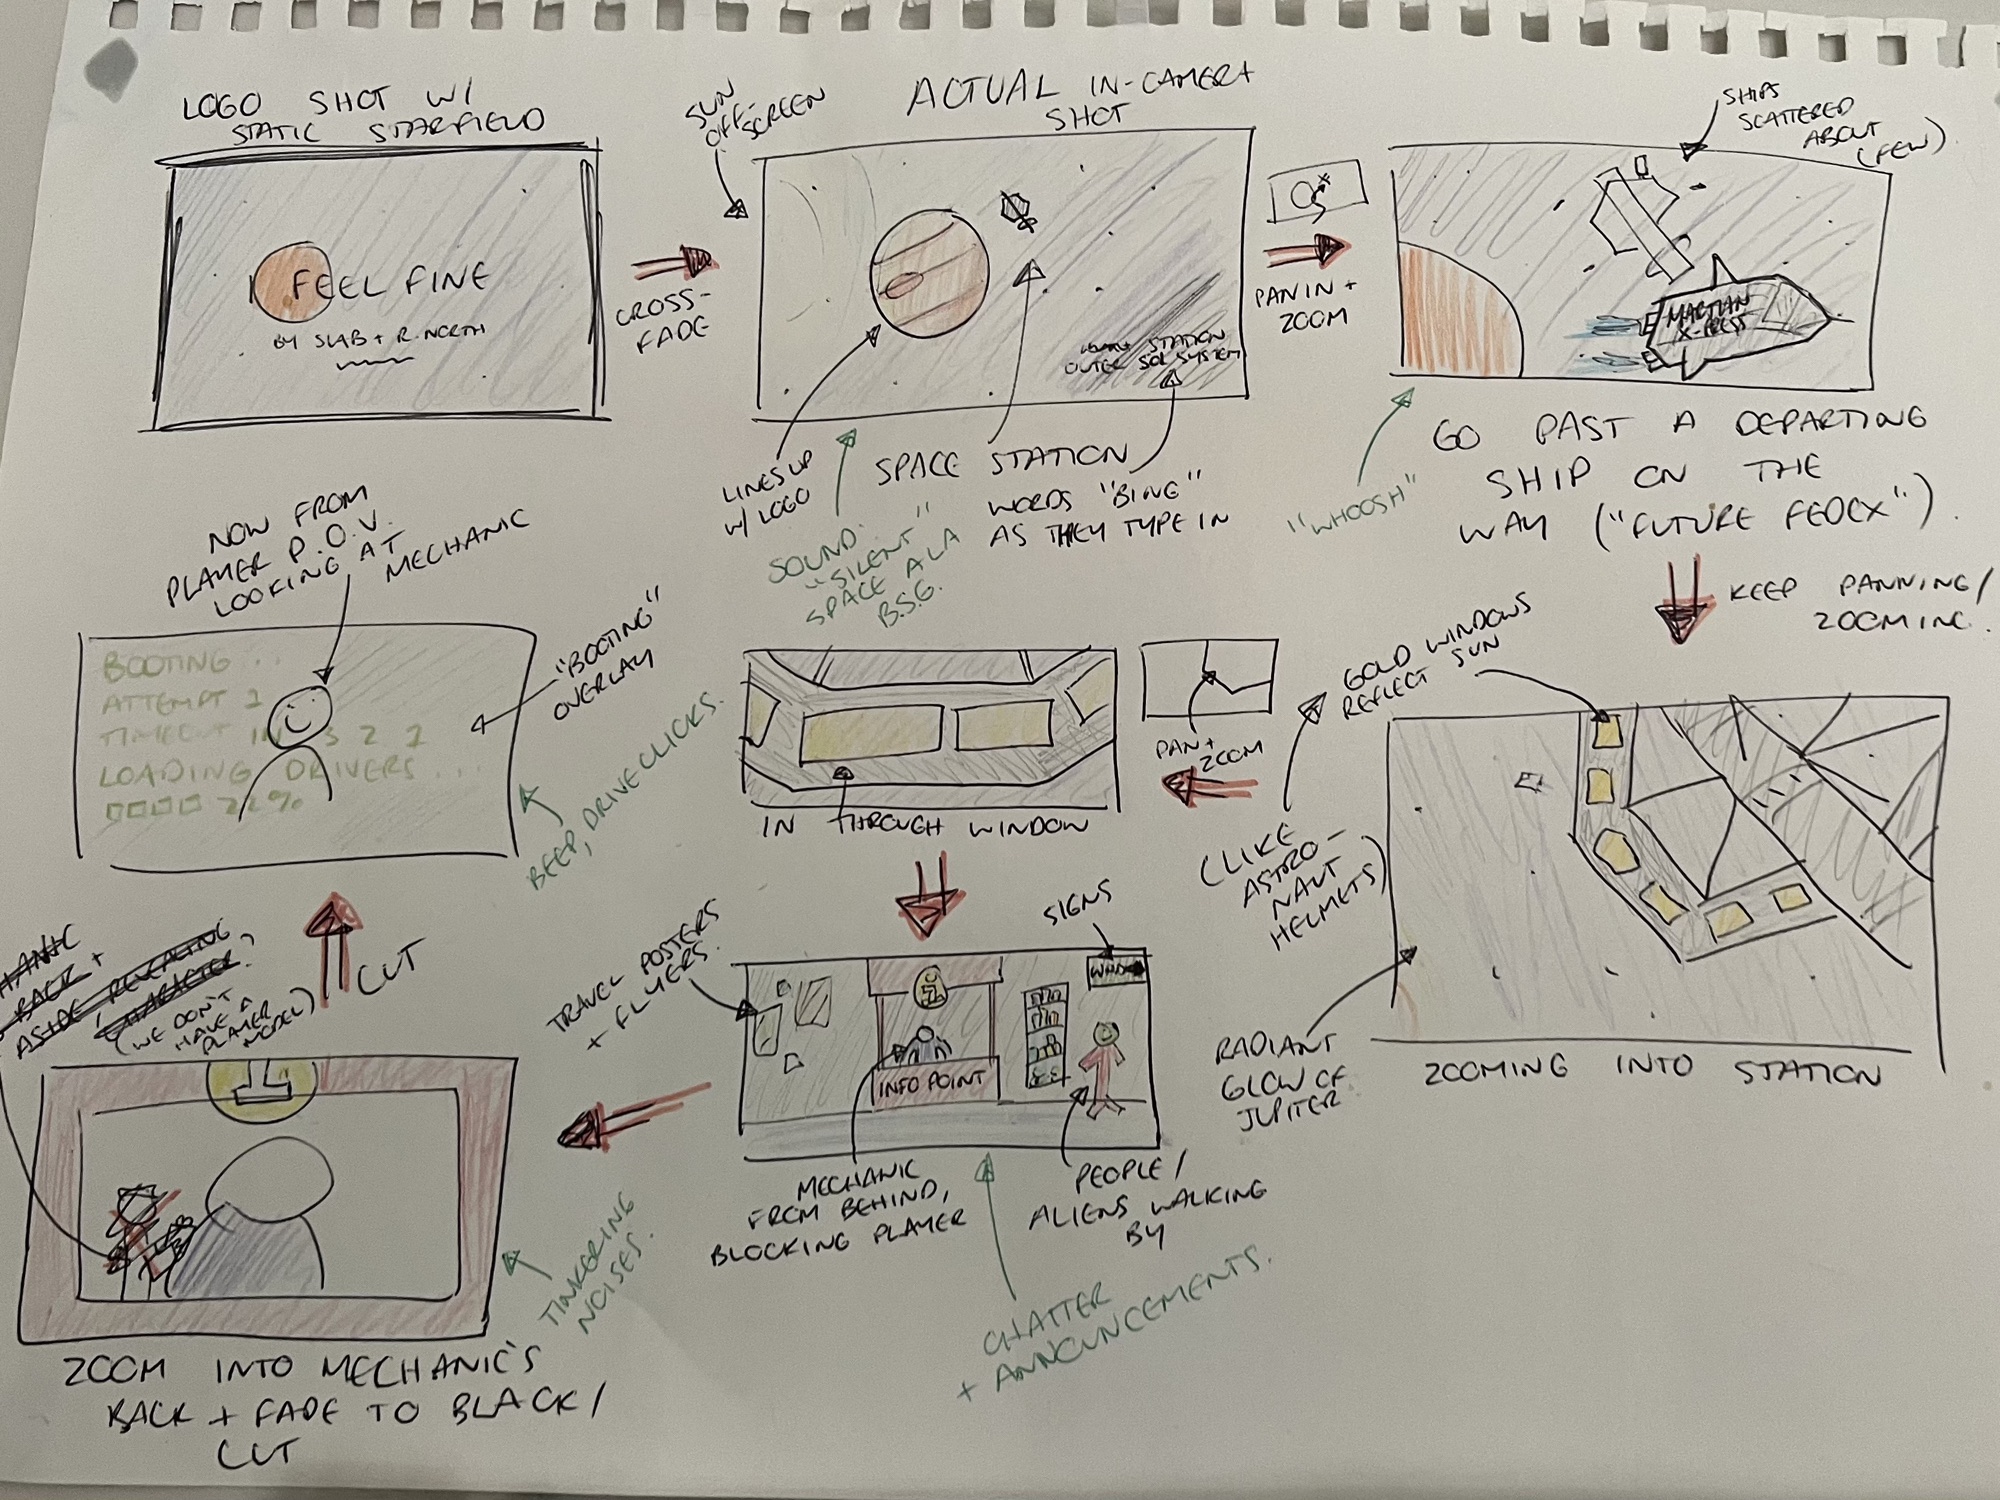 LOGO SHOT W/
STATIC STARFIELD
I FEEL FINE
BY SLAB + R. NORTH
CROSS-
FADE
SUN
OFF-
SCREEN
ACTUAL IN-CAMERA
SHOT
STATION
OUTER SOL SYSTEM
LINES UP
W/ LOGO
SOUND:
"SILENT"
SPACE A LA
B.S.G.
SPACE STATION
WORDS "BING"
AS THEY TYPE IN
PAN IN +
ZOOM
SHIPS
SCATTERED
ABOUT
(FEW)
MARTIAN
X-PRESS
"WHOOSH"
GO PAST A DEPARTING
SHIP ON THE
WAY ("FUTURE FEDEX").
KEEP PANNING/
ZOOMING.
GOLD WINDOWS
REFLECT SUN
(LIKE
ASTRO-
NAUT
HELMETS)
RADIANT
GLOW OF
JUPITER
ZOOMING INTO STATION
PAN +
ZOOM
IN THROUGH WINDOW
TRAVEL POSTERS
+ FLYERS.
SIGNS
i
INFO POINT
MECHANIC
FROM BEHIND,
BLOCKING PLAYER
PEOPLE/
ALIENS WALKING
BY
CHATTER
+ ANNOUNCEMENTS.
TINKERING
NOISES.
ASIDE REVEALING
CHARACTER.
(WE DON'T
HAVE A
PLAYER
MODEL)
ZOOM INTO MECHANIC'S
BACK + FADE TO BLACK/
CUT
CUT
NOW FROM
PLAYER P.O.V.
LOOKING AT
MECHANIC
BOOTING ..
ATTEMPT 1
TIMEOUT IN 3 2 1
LOADING DRIVERS...
22%
"BOOTING"
OVERLAY
BEEP, DRIVE CLICKS.